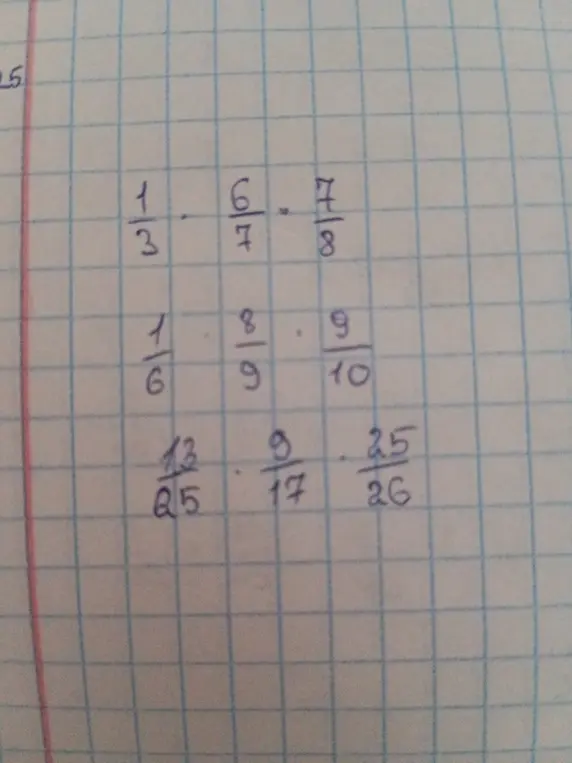 25
1/3 · 6/7 · 7/8
1/6 · 8/9 · 9/10
13/25 · 9/17 · 25/26